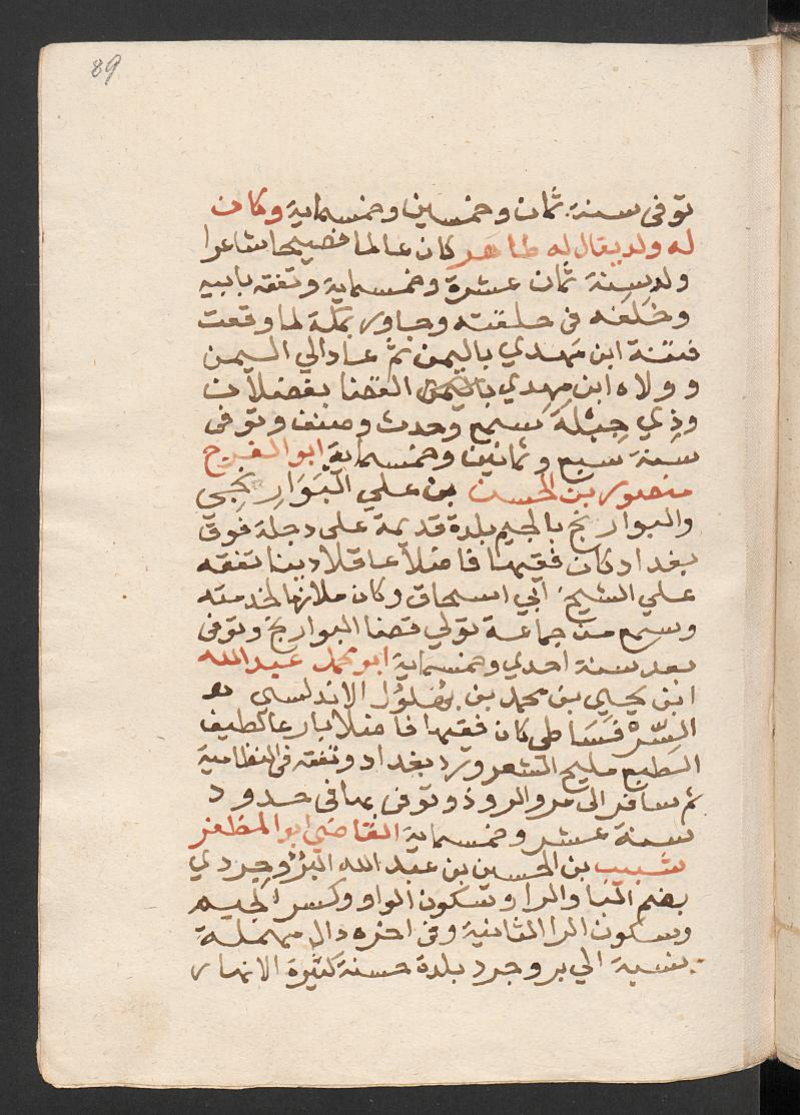 89
توفى سنة ثمان وخمسين وخمسماية وكان
له ولد يقال له طاهر كان عالما فصيحا شاعرا
ولد سنة ثمان عشرة وخمسماية وتفقه بابيه
وخلفه فى حلقته وجاور بمكة لما وقعت
فتنة ابن مهدي باليمن ثم عاد الي اليمن
وولاه ابن مهدي القضا بفضلان
وذي جبلة سمع وحدث وصنف وتوفى
سنة سبع وثمانين وخمسماية ابو الفرج
منصور بن الحسن بن علي البَوَارِيجي
والبواريج بالجيم بلدة قديمة على دجلة فوق
بغداد كان فقيها فاضلا عاقلا دينا تفقه
علي الشيخ ابي اسحاق وكان ملازما لخدمته
وسمع من جماعة تولي قضا البواريج وتوفى
بعد سنة احدي وخمسماية ابو محمد عبد الله
ابن يحيي بن محمد بن بُهْلُول الاندلسي
السَّرْقَسَاطي كان فقيها فاضلا بارعا لطيف
الطبع مليح الشعر ورد بغداد وتفقه فى النظامية
ثم سافر الى مرو الروذ وتوفى بها فى حدود
سنة عشر وخمسماية القاضي ابو المظفر
شبيب بن الحسين بن عبد الله البُرُوجِردي
بضم البا والرا وسكون الواو وكسر الجيم
وسكون الرا الثانية وفى اخره دال مهملة
نسبة الي بروجرد بلدة حسنة كثيرة الانهار